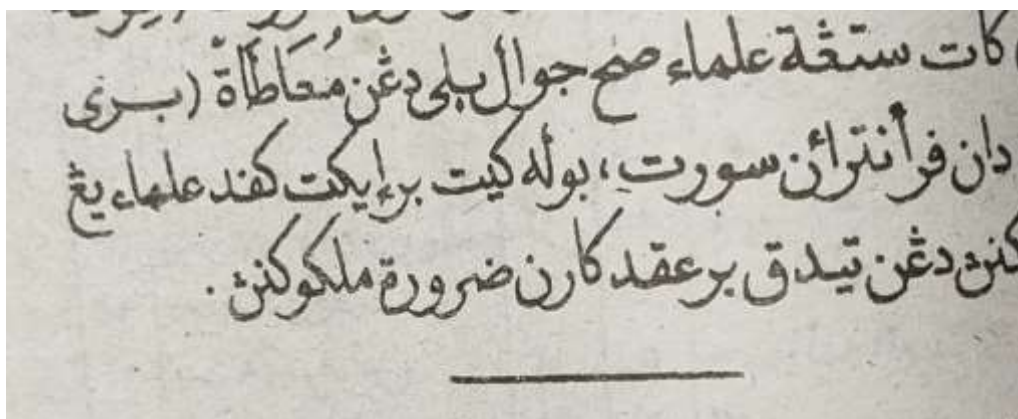 كات ستڠة علماء صح جوال بلي دڠن مُعَاطَاة (بري
دان فرأنترائن سورت، بوله كيت برايكت كفد علماء يڠ
دڠن تيدق برعقد كارن ضرورة ملكوكنڽ.